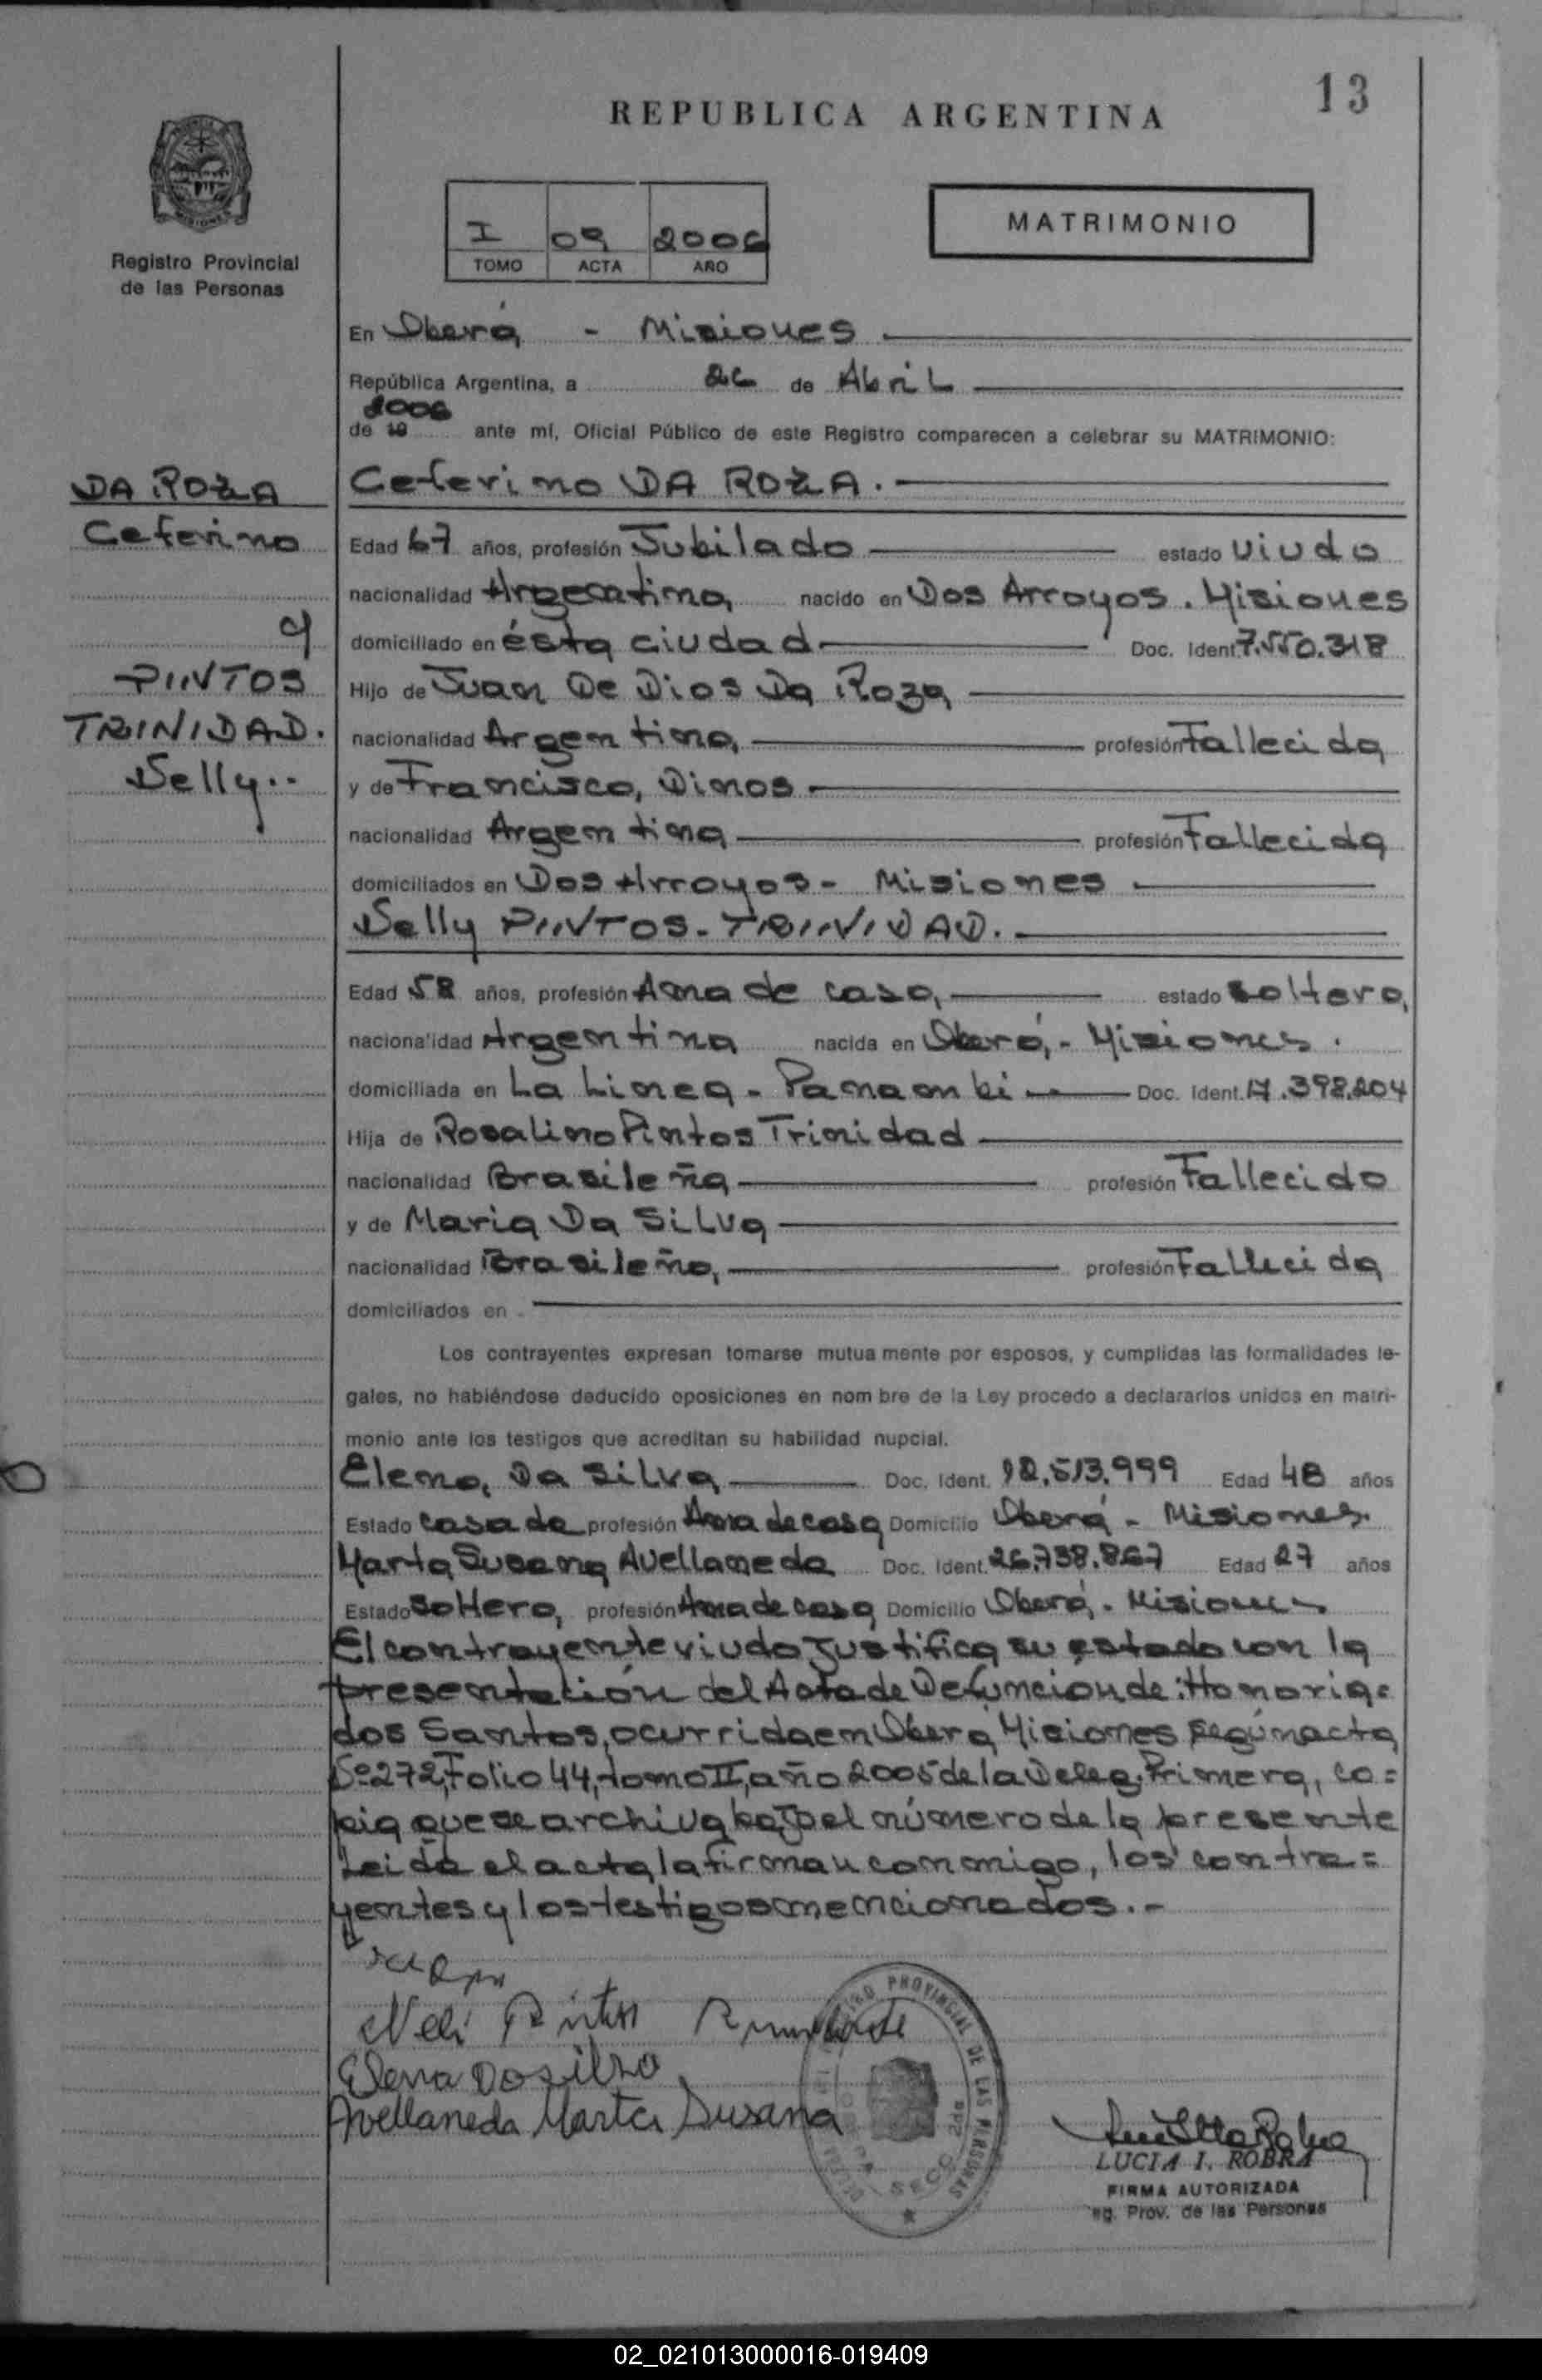 13
REPUBLICA ARGENTINA
MATRIMONIO
I 09 2006
TOMO ACTA AÑO
Registro Provincial
de las Personas
En Oberá - Misiones
República Argentina, a 26 de Abril
2006
de 19 ante mí, Oficial Público de este Registro comparecen a celebrar su MATRIMONIO:
DA ROZA
Ceferino
y
PINTOS
TRINIDAD.
Nelly..
Ceferino DA ROZA.
Edad 67 años, profesión Jubilado estado viudo
nacionalidad Argentina nacido en Dos Arroyos. Misiones
domiciliado en ésta ciudad Doc. Ident. 7.550.318
Hijo de Juan De Dios Da Roza
nacionalidad Argentina profesión Fallecida
y de Francisca Dinos
nacionalidad Argentina profesión Fallecida
domiciliados en Dos Arroyos - Misiones
Nelly PINTOS - TRINIDAD.
Edad 58 años, profesión Ama de casa estado soltera
nacionalidad Argentina nacida en Oberá - Misiones.
domiciliada en La Linea - Panambi Doc. Ident. 17.398.204
Hija de Rosalino Pintos Trinidad
nacionalidad Brasileña profesión Fallecido
y de Maria Da Silva
nacionalidad Brasileña profesión Fallecida
domiciliados en
Los contrayentes expresan tomarse mutua mente por esposos, y cumplidas las formalidades le-
gales, no habiéndose deducido oposiciones en nom bre de la Ley procedo a declararlos unidos en matri-
monio ante los testigos que acreditan su habilidad nupcial.
Elena Da Silva Doc. Ident. 12.513.999 Edad 48 años
Estado casada profesión Ama de casa Domicilio Oberá - Misiones.
Marta Susana Avellaneda Doc. Ident. 26.738.867 Edad 27 años
Estado Soltera profesión Ama de casa Domicilio Oberá - Misiones
El contrayente viudo Justifica su estado con la
presentación del Acta de Defunción de: Honoria
dos Santos, ocurrida en Oberá Misiones según acta
Nº 272, Folio 44, tomo II, año 2005 de la Deleg. Primera, co=
pia que se archiva bajo el número de la presente
Leida el acta la firman conmigo, los contra=
yentes y los testigos mencionados.-
Neli Pintos
Elena Da silva
Avellaneda Marta Susana
PROVINCIAL DE LAS PERSONAS
SECC
LUCIA I. ROBRA
FIRMA AUTORIZADA
eg. Prov. de las Personas
02_021013000016-019409